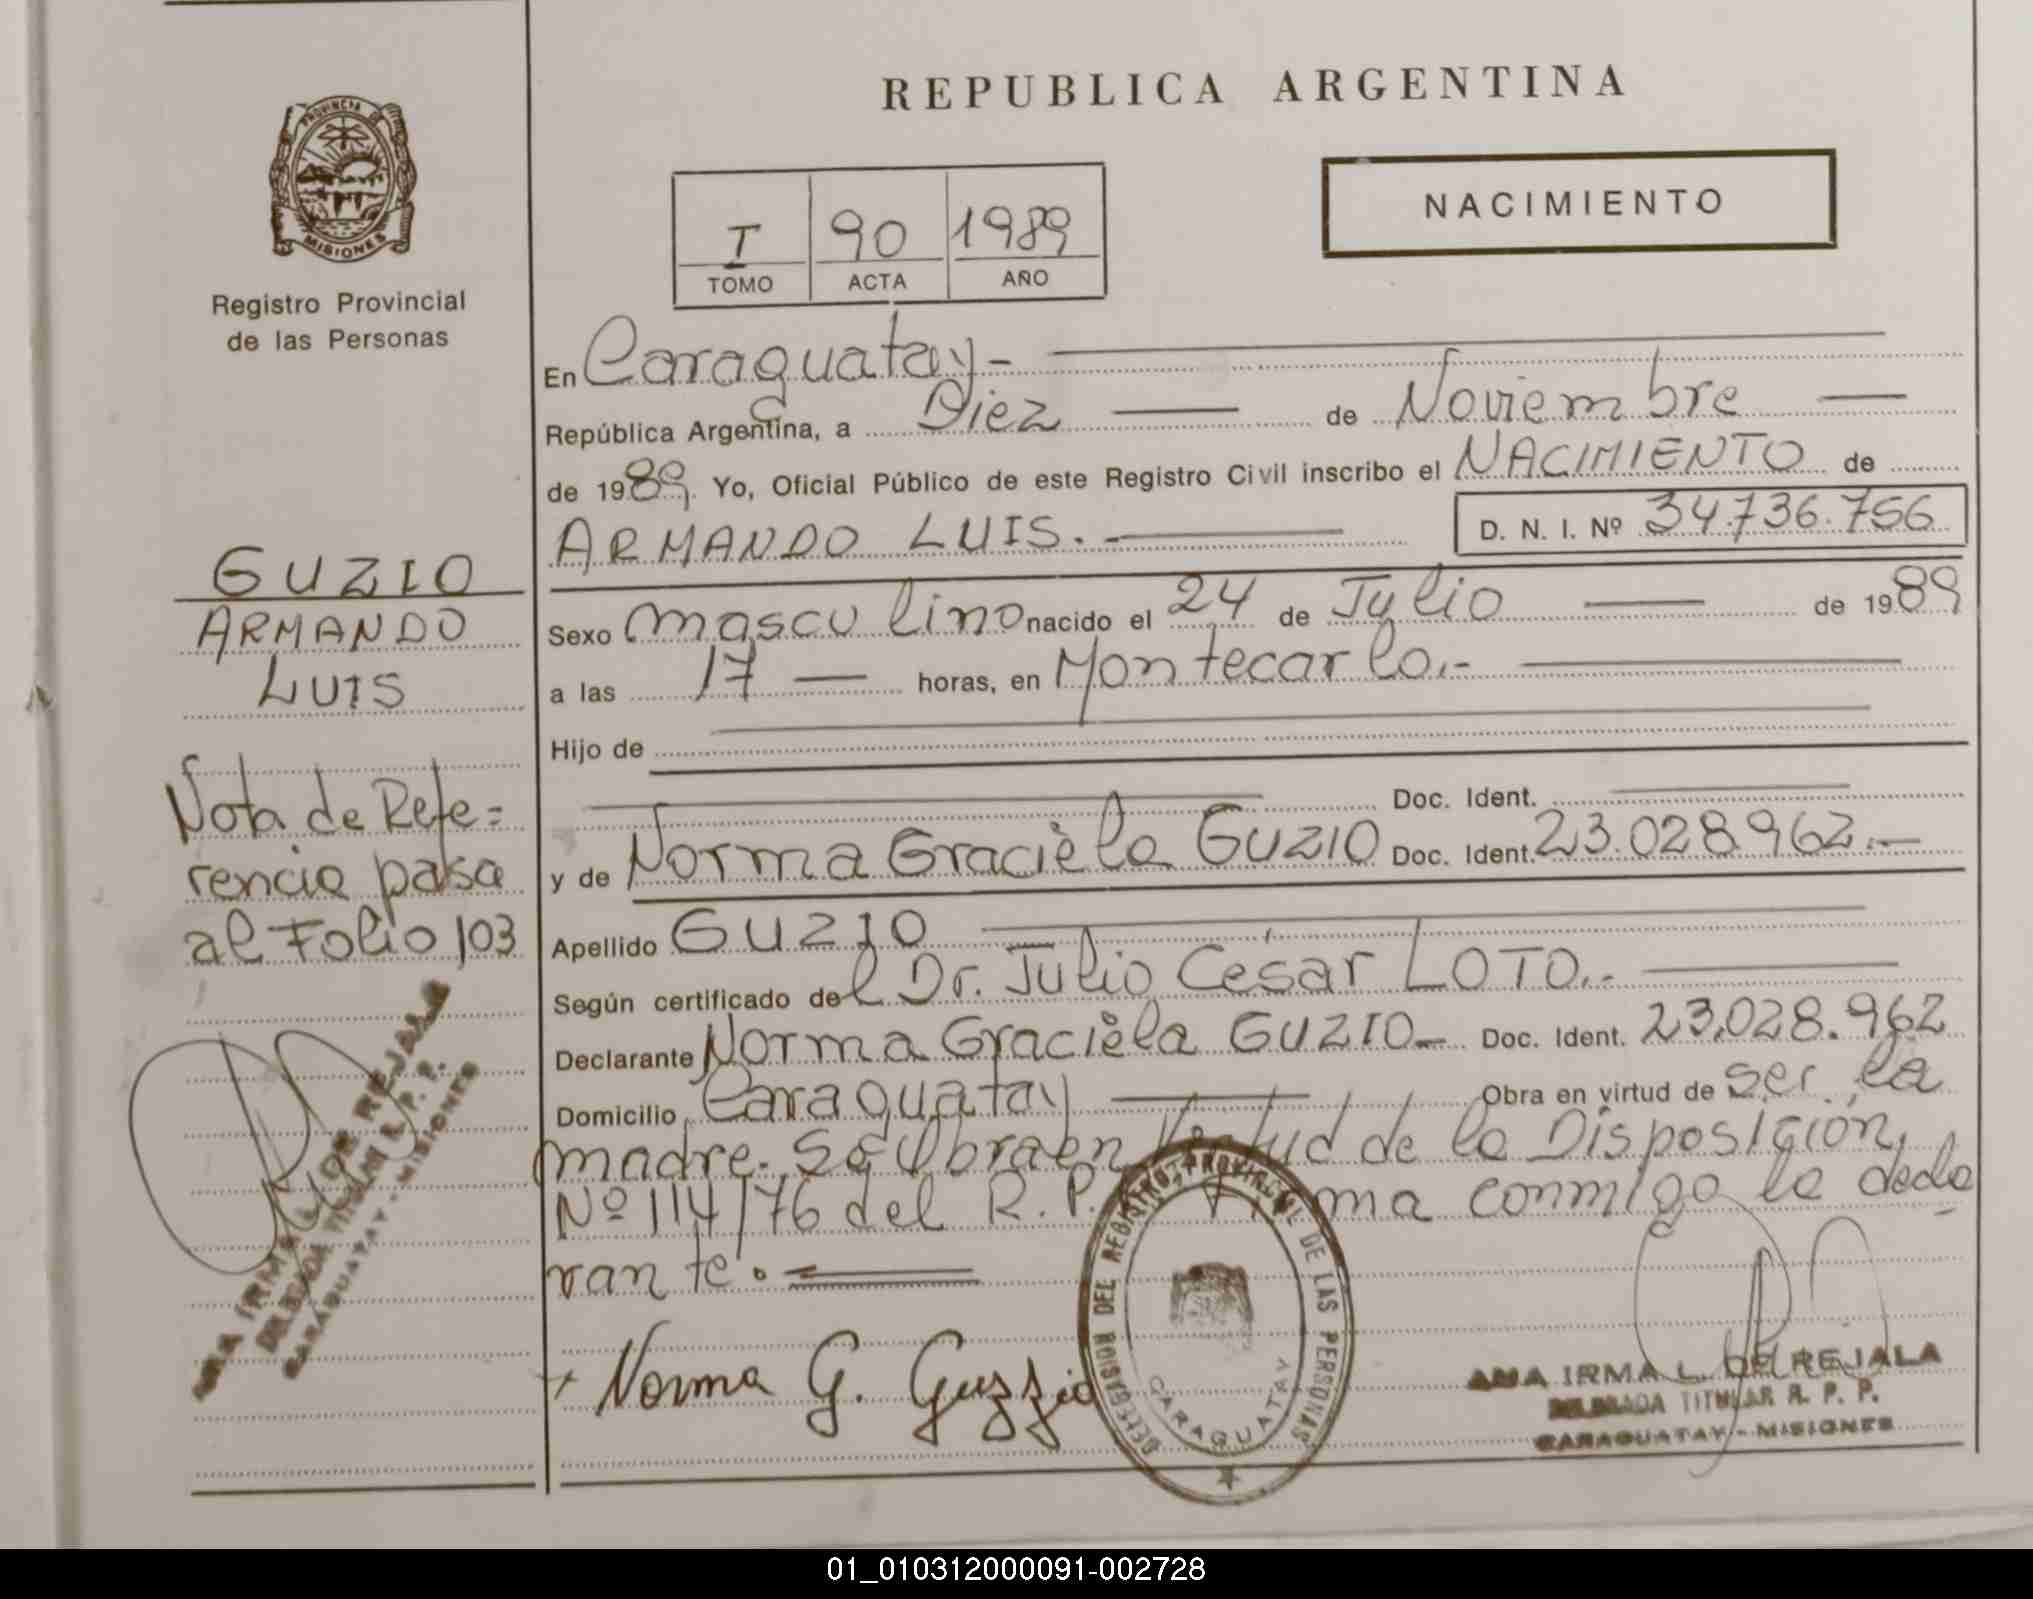 REPUBLICA ARGENTINA
PROVINCIA DE
MISIONES
Registro Provincial
de las Personas
NACIMIENTO
I 90 1989
TOMO ACTA AÑO
En Caraguatay -
República Argentina, a Diez de Noviembre
de 1989. Yo, Oficial Público de este Registro Civil inscribo el NACIMIENTO de
ARMANDO LUIS. D. N. I. Nº 34.736.756
Sexo masculino nacido el 24 de Julio de 1989
a las 17 horas, en Montecarlo.-
Hijo de
Doc. Ident.
y de Norma Graciela GUZIO Doc. Ident. 23.028.962.-
Apellido GUZIO
Según certificado del Dr. Julio César LOTO.-
Declarante Norma Graciela GUZIO - Doc. Ident. 23.028.962
Domicilio Caraguatay Obra en virtud de ser la
madre. Se Obra en Virtud de la Disposición,
Nº 114/76 del R.P. Firma conmigo la decla
rante.
GUZIO
ARMANDO
LUIS
Nota de Refe=
rencia pasa
al Folio 103
ANA IRMA L. DE REJALA
DELEGADA TITULAR R. P. P.
CARAGUATAY - MISIONES
Norma G. Guzzio
DELEGACION DEL REGISTRO PROVINCIAL DE LAS PERSONAS
CARAGUATAY
ANA IRMA L. DE REJALA
DELEGADA TITULAR R. P. P.
CARAGUATAY - MISIONES
01_010312000091-002728